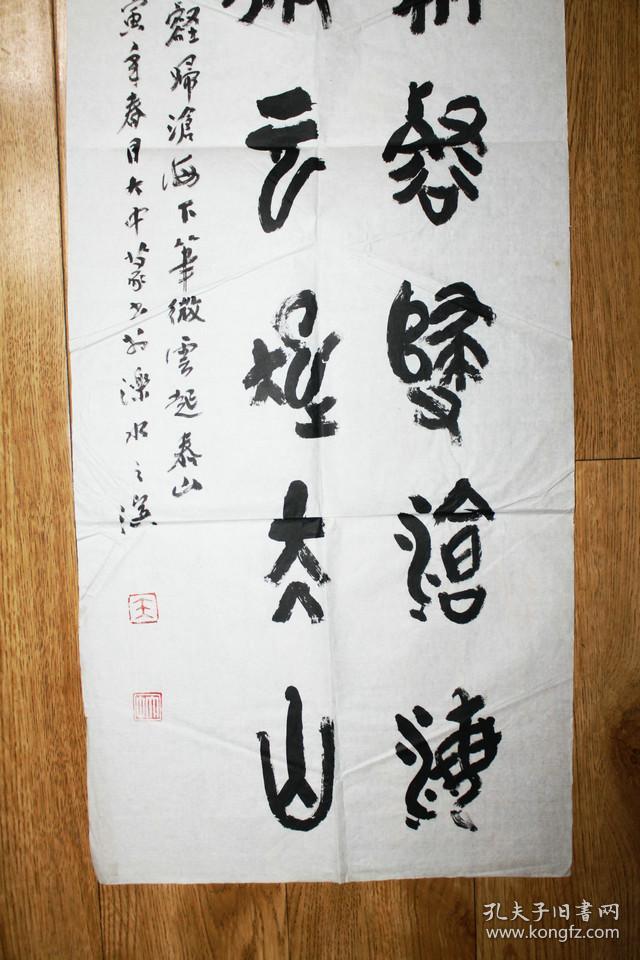 壑歸滄海
云起太山
壑歸滄海下筆微雲起泰山
寅年春日大中篆书於濼水之
王
孔夫子旧书网
www.kongfz.com